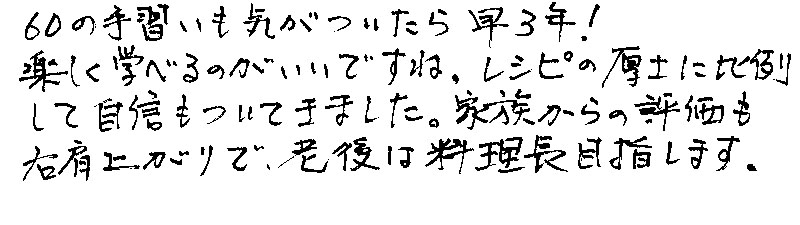 60の手習いも気がついたら早3年!
楽しく学べるのがいいですね。レシピの厚土に比例
して自信もついてきました。家族からの評価も
右肩上がりで、老後は料理長目指します。